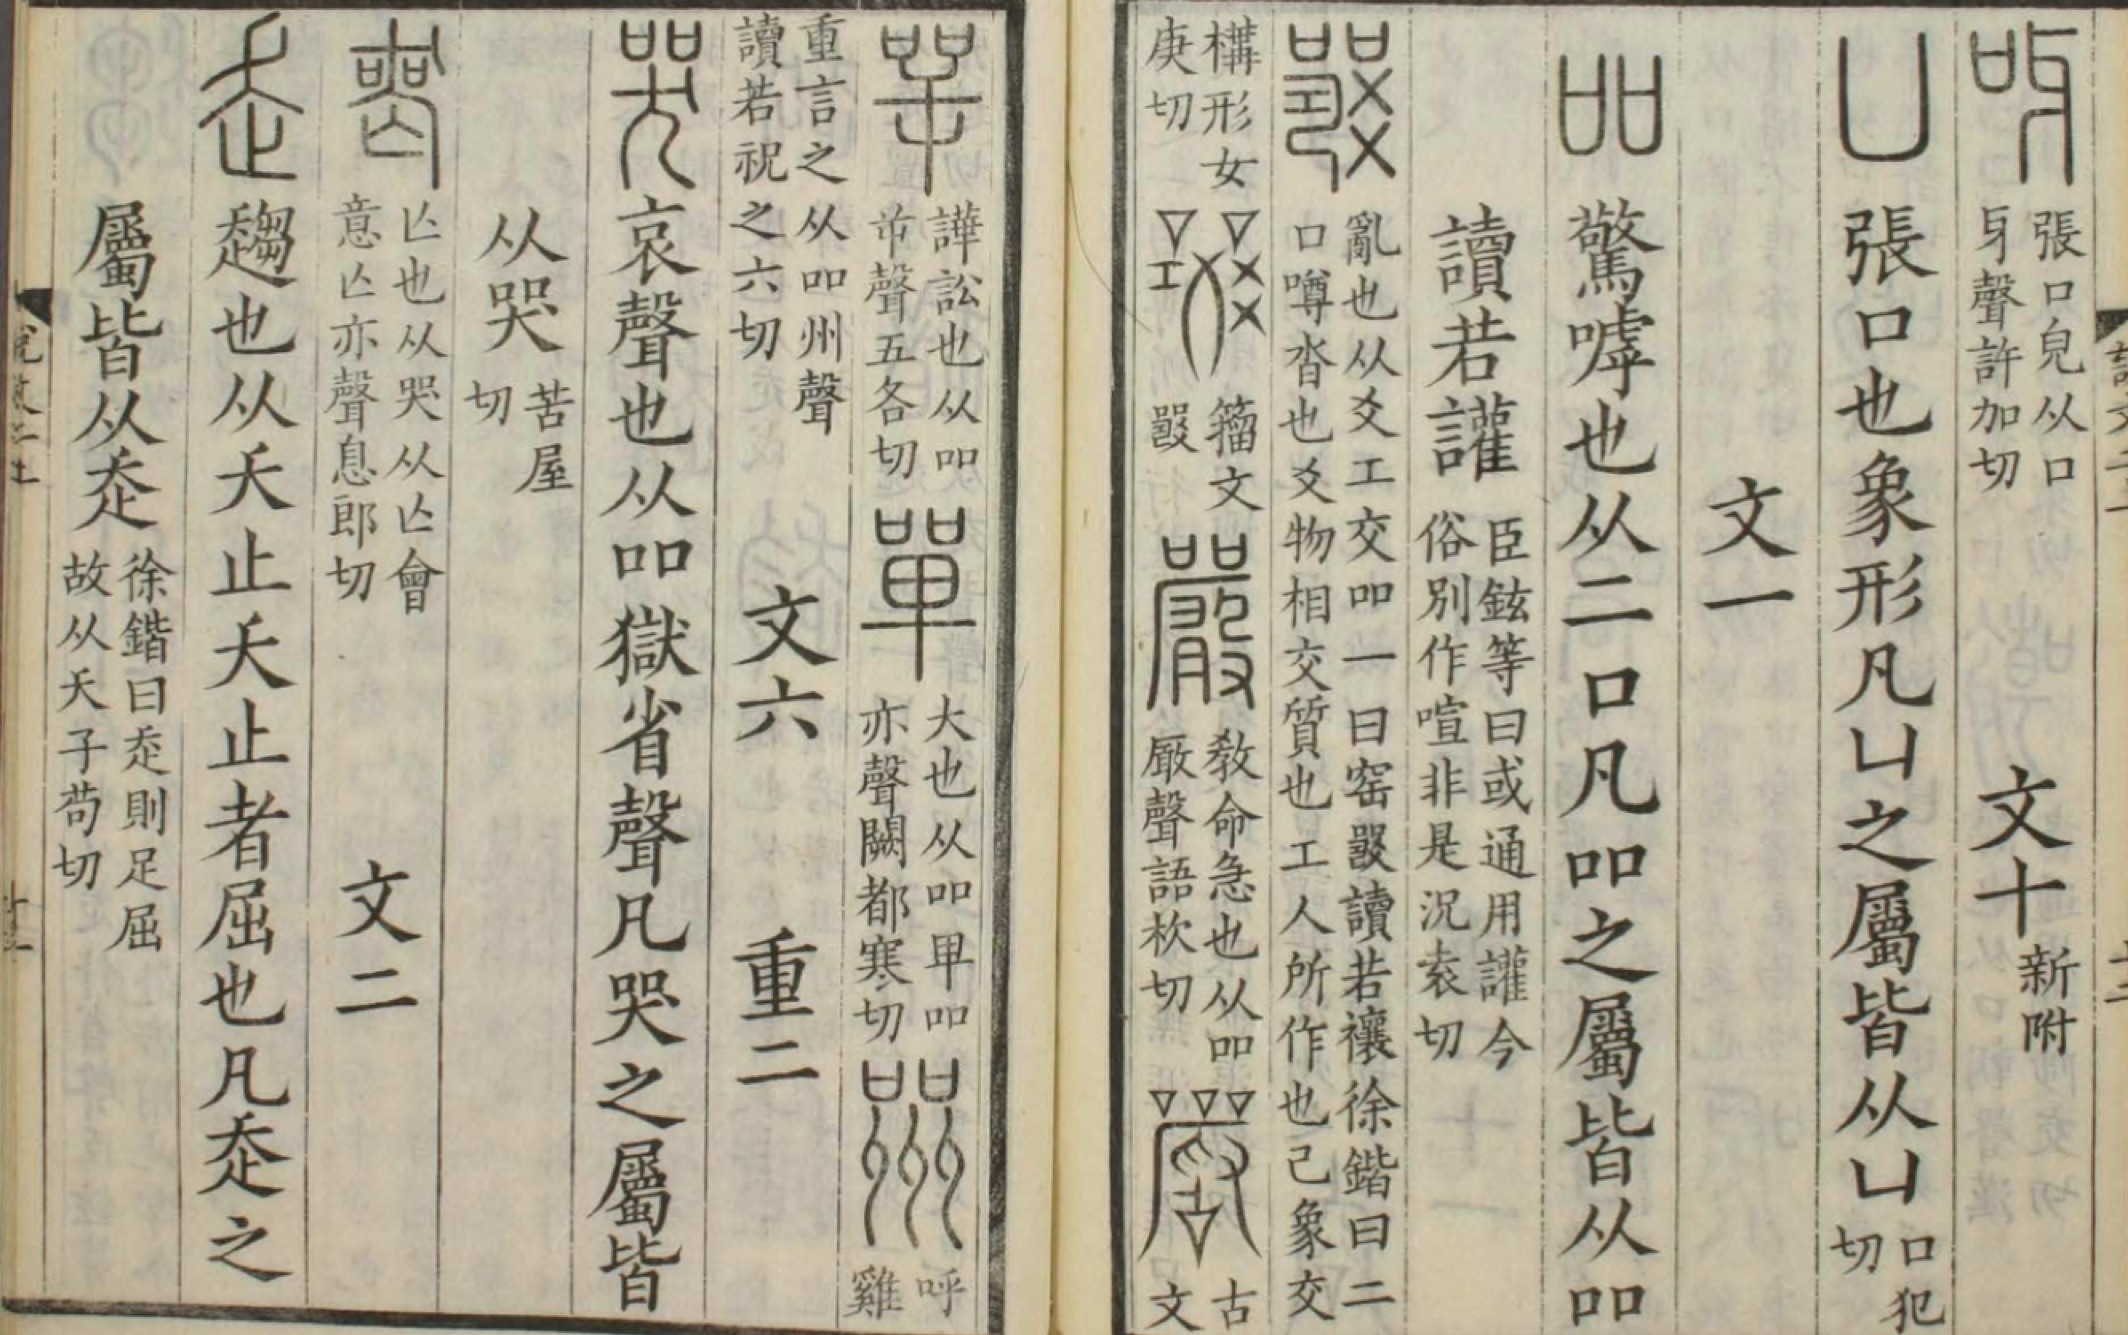 呀張口皃从口牙聲許加切 文十新附
凵張口也象形凡凵之屬皆从凵口犯切
文一
吅驚嘑也从二口凡吅之屬皆从吅
讀若讙臣鉉等曰或通用讙今俗別作喧非是況袁切
𤕦亂也从爻工交吅一曰窑𤕦讀若禳徐鍇曰二口噂沓也爻物相交質也工人所作也己象交
構形女庚切 籒文𤕦 嚴教命急也从吅厰聲語杴切 古文
咢譁訟也从吅屰聲五各切 單大也从吅𠦒吅亦聲闕都寒切 喌呼雞
重言之从吅州聲讀若祝之六切 文六 重二
哭哀聲也从吅獄省聲凡哭之屬皆
从哭苦屋切
喪亾也从哭从亾會意亾亦聲息郎切 文二
走趨也从夭止夭止者屈也凡走之
屬皆从走徐鍇曰走則足屈故从夭子苟切